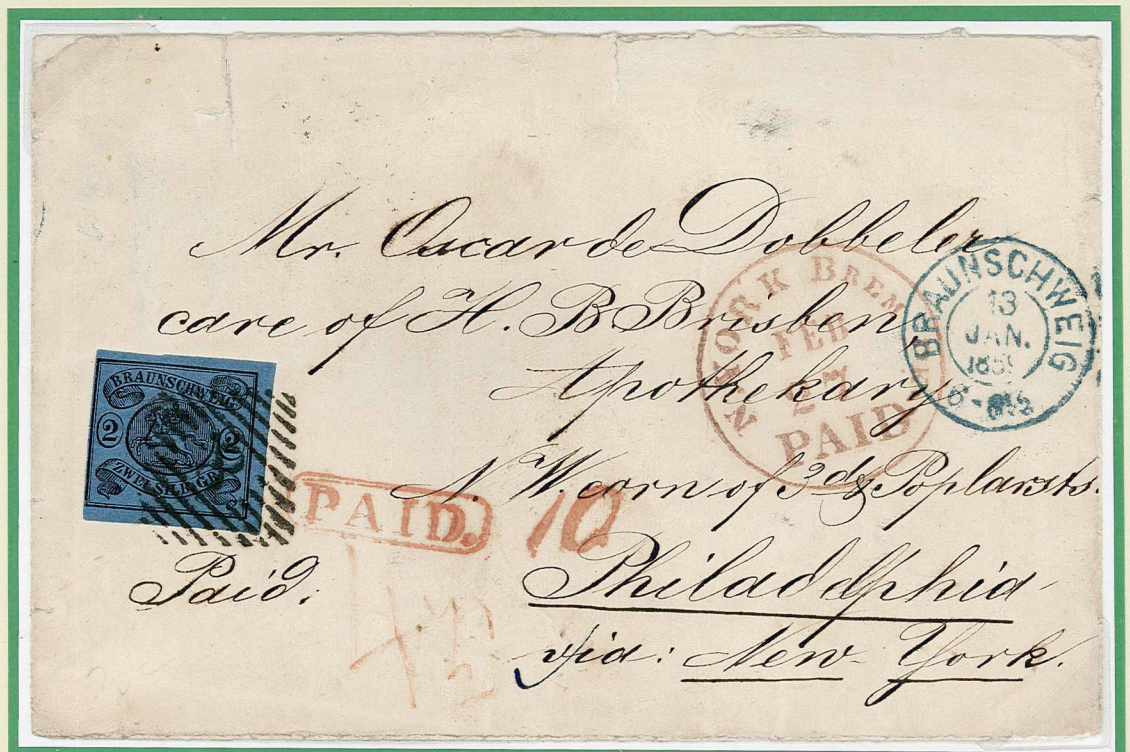 Mr. Oscar de Dobbeler
care of H. B Brisben
Apothekary
N. W. corn of 3d & Poplar sts.
Philadelphia
via: New York.
Paid.
BRAUNSCHWEIG
2 2
ZWEI SILB.GR.
PAID.
10
N. YORK BREM
FEB
27
PAID
BRAUNSCHWEIG
13
JAN.
6-6½